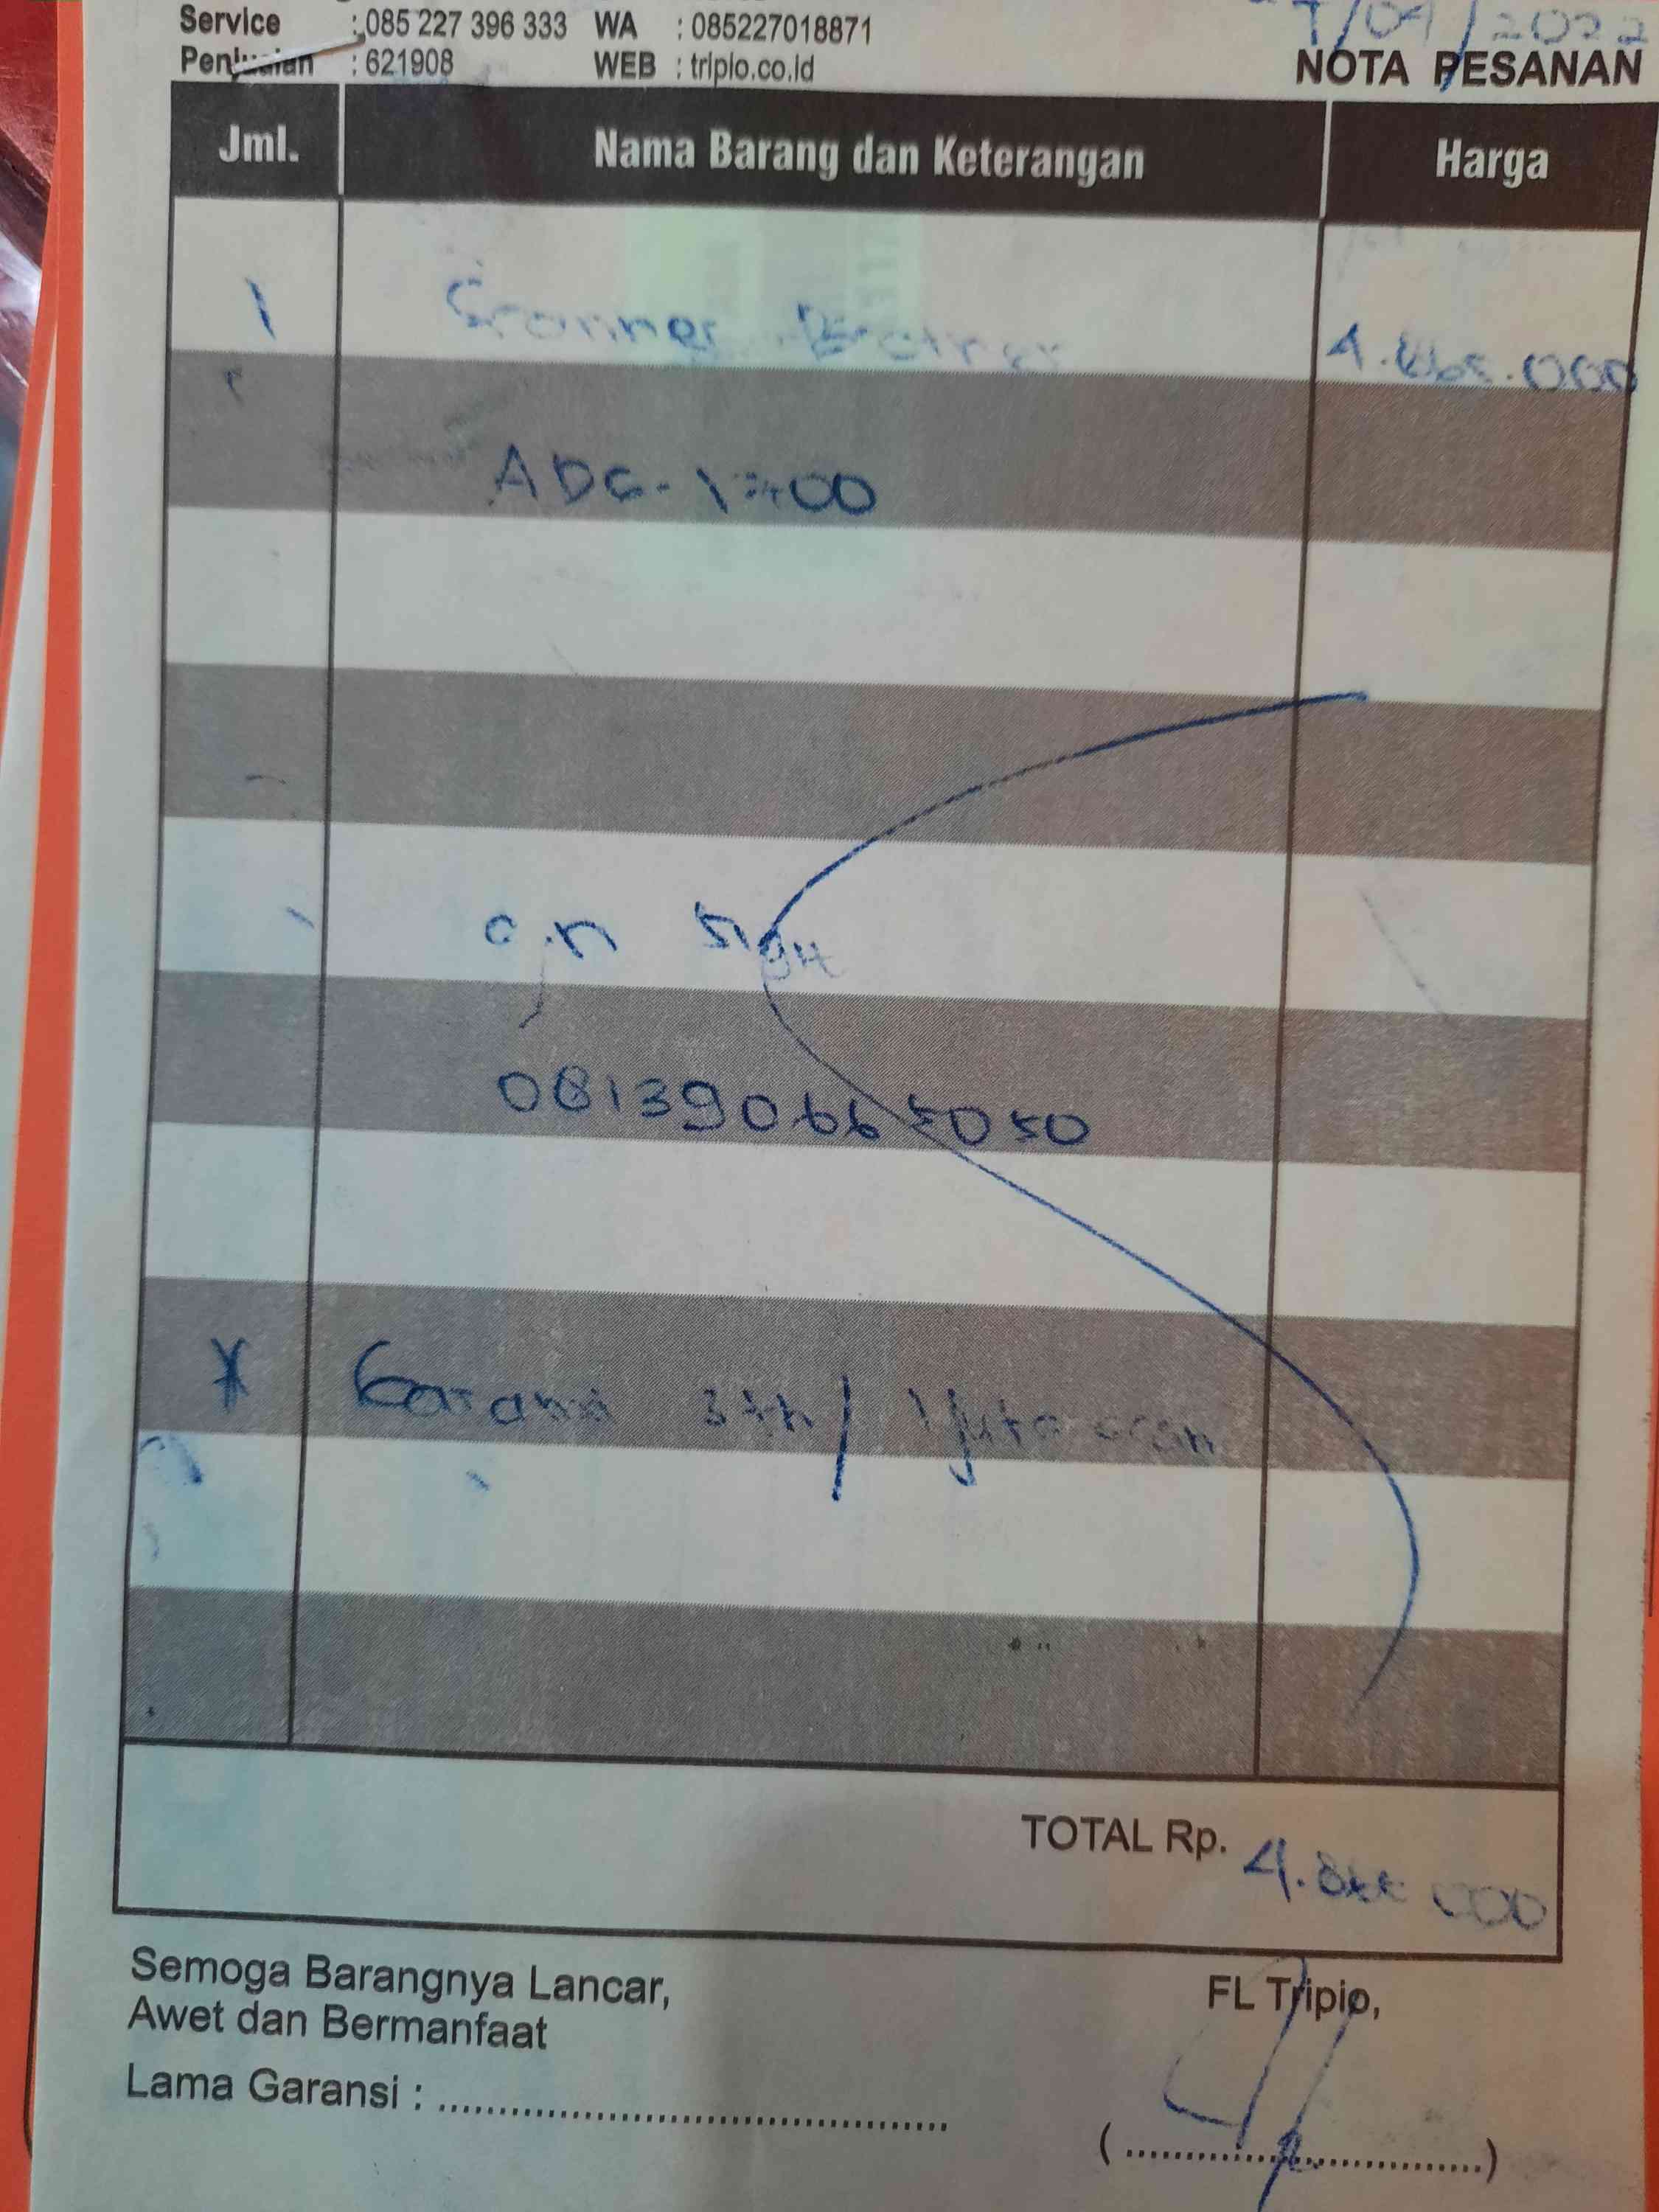 Service : 085 227 396 333 WA : 085227018871
Penjualan : 621908 WEB : tripio.co.id
/04/2022
NOTA PESANAN
Jml. Nama Barang dan Keterangan Harga
1 Scanner
ADC-1700
a.n Sigit
081390665050
* Garansi 3th / 1juta scan
TOTAL Rp.
Semoga Barangnya Lancar,
Awet dan Bermanfaat
FL Tripio,
Lama Garansi : ..........
(..........)